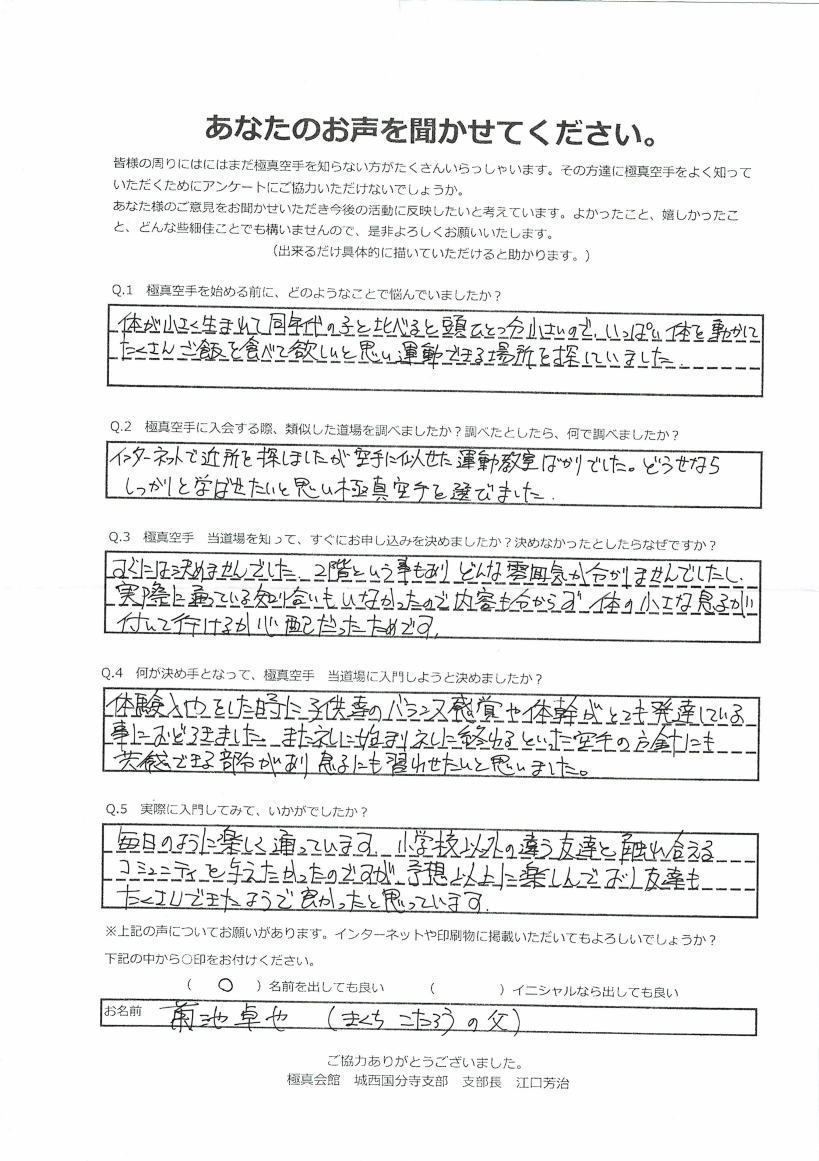 あなたのお声を聞かせてください。
皆様の周りにはにはまだ極真空手を知らない方がたくさんいらっしゃいます。その方達に極真空手をよく知って
いただくためにアンケートにご協力いただけないでしょうか。
あなた様のご意見をお聞かせいただき今後の活動に反映したいと考えています。よかったこと、嬉しかったこ
と、どんな些細佳ことでも構いませんので、是非よろしくお願いいたします。
（出来るだけ具体的に描いていただけると助かります。）
Q.1 極真空手を始める前に、どのようなことで悩んでいましたか？
体が小さく生まれて同年代の子と比べると頭ひとつ分小さいので、いっぱい体を動かして
たくさんご飯を食べて欲しいと思い運動できる場所を探していました.
Q.2 極真空手に入会する際、類似した道場を調べましたか？調べたとしたら、何で調べましたか？
インターネットで近所を探しましたが空手に似せた運動教室ばかりでした。どうせなら
しっかりと学ばせたいと思い極真空手を選びました.
Q.3 極真空手 当道場を知って、すぐにお申し込みを決めましたか？決めなかったとしたらなぜですか？
すぐには決めませんでした、2階という事もありどんな雰囲気か分かりませんでしたし、
実際に通っている知り合いもいなかったので内容も分からず、体の小さな息子が
付いて行けるか心配だったためです.
Q.4 何が決め手となって、極真空手 当道場に入門しようと決めましたか？
体験入門をした時に子供達のバランス感覚や体幹がとても発達している
事におどろきました。また礼に始まり礼に終わるといった空手の方針にも
共感できる部分があり息子にも習わせたいと思いました。
Q.5 実際に入門してみて、いかがでしたか？
毎日のように楽しく通っています。小学校以外の違う友達と触れ合える
コミュニティを与えたかったのですが、予想以上に楽しんでおり友達も
たくさんできたようで良かったと思っています.
※上記の声についてお願いがあります。インターネットや印刷物に掲載いただいてもよろしいでしょうか？
下記の中から○印をお付けください。
（ ○ ）名前を出しても良い （ ）イニシャルなら出しても良い
お名前 菊池卓也 (きくち こたろうの父)
ご協力ありがとうございました。
極真会館 城西国分寺支部 支部長 江口芳治